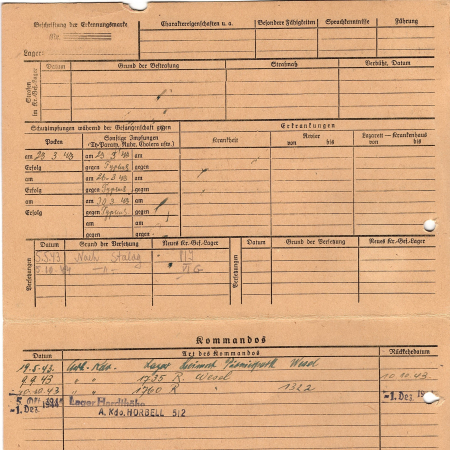 Beschriftung der Erkennungsmarke
Nr.
Charaktereigenschaften u. a.
Besondere Fähigkeiten
Sprachkenntnisse
Führung
Lager:
Strafen im Kr.-Gef.-Lager
Datum
Grund der Bestrafung
Strafmaß
Verbüßt, Datum
Schutzimpfungen während der Gefangenschaft gegen
Erkrankungen
Pocken
Sonstige Impfungen
(Ty-Paratyp, Ruhr, Cholera usw.)
Krankheit
Revier
von bis
Lazarett — Krankenhaus
von bis
am 23. 3. 43 am 23. 3. 43 am
Erfolg gegen Typhus gegen
am am 26. 3. 43 am
Erfolg gegen Typhus gegen
am am 30. 3. 43 am
Erfolg gegen Typhus gegen
am am
gegen gegen
Versetzungen
Datum
Grund der Versetzung
Neues Kr.-Gef.-Lager
Versetzungen
Datum
Grund der Versetzung
Neues Kr.-Gef.-Lager
5.5.43 Nach Stalag VI J
5.10.44 —"— VI G
Kommandos
Datum
Art des Kommandos
Rückkehrdatum
19.5.43. Arb. Kdo. Lager Wesel
9.9.43 " " 1735 R. Wesel 10.10.43
10.10.43 " " 1760 R 1322
5. Okt. 1944 Lager Hardthöhe -1. Dez. 19
-1. Dez. 1944 A. Kdo. HORBELL 512